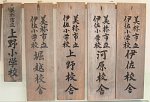 美祢市立
伊佐小学校
伊佐校舎
美祢市立
伊佐小学校
河原校舎
美祢市立
伊佐小学校
上野校舎
美祢市立
伊佐小学校
堀越校舎
上野小学校